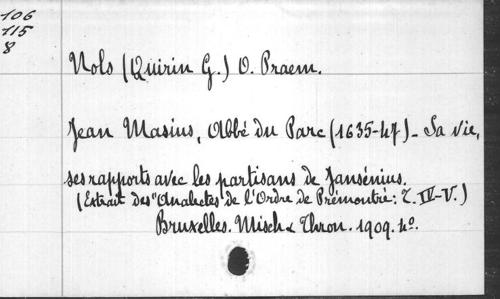 106
115
8
Nols (Quirin G.) O. Praem.
Jean Masius, Abbé du Parc (1635-47) - Sa vie,
ses rapports avec les partisans de Jansénius.
(Extrait des "Analectes" de l'Ordre de Prémontré: T. IV-V.)
Bruxelles. Misch & Thron. 1909. 4o.